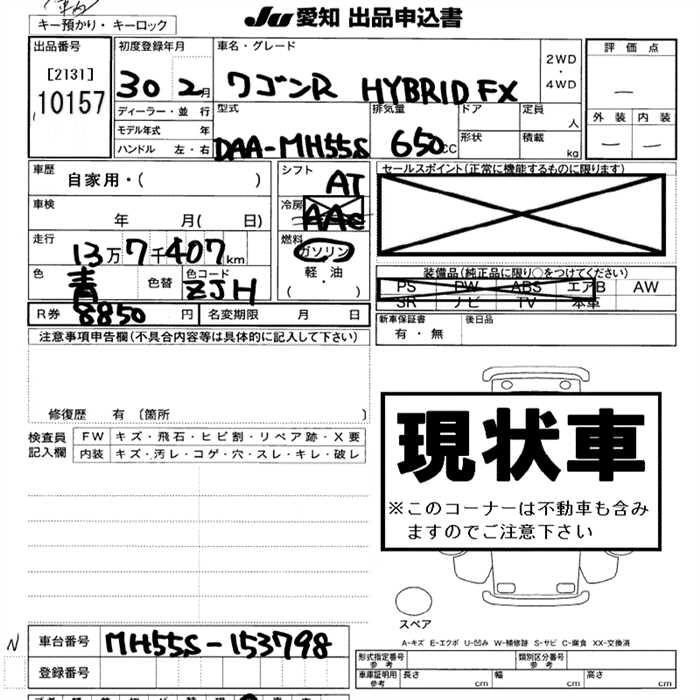 キー預かり・キーロック
JU 愛知 出品申込書
出品番号
[2131]
10157
初度登録年月
30 2月
ディーラー・並行
モデル年式 年
ハンドル 左・右
車名・グレード
ワゴンR HYBRID FX
2WD
・
4WD
型式
DAA-MH55S
排気量
650CC
ドア
形状
定員
人
積載
kg
評価点
―
外装 内装
― ―
車歴
自家用・( )
車検
年 月( 日)
走行
13万7千407km
色
青
色替
色コード
ZJH
シフト
AT
冷房
AAC
燃料
ガソリン
軽・油
( ・ )
セールスポイント(正常に機能するものに限ります)
装備品(純正品に限り○をつけてください)
PS PW ABS エアB AW
SR ナビ TV 本革
新車保証書
有・無
後日品
R券
8850円
名変期限 月 日
注意事項申告欄(不具合内容等は具体的に記入して下さい)
修復歴 有 〔箇所 〕
検査員
記入欄
FW キズ・飛石・ヒビ割・リペア跡・X要
内装 キズ・汚レ・コゲ・穴・スレ・キレ・破レ
現状車
※このコーナーは不動車も含み
ますのでご注意下さい
スペア
A-キズ E-エクボ U-凹み W-補修跡 S-サビ C-腐食 XX-交換済
N
車台番号
MH55S-153798
登録番号
形式指定番号
参考
類別区分番号
参考
車庫証明用
参考
長さ cm 幅 cm 高さ cm